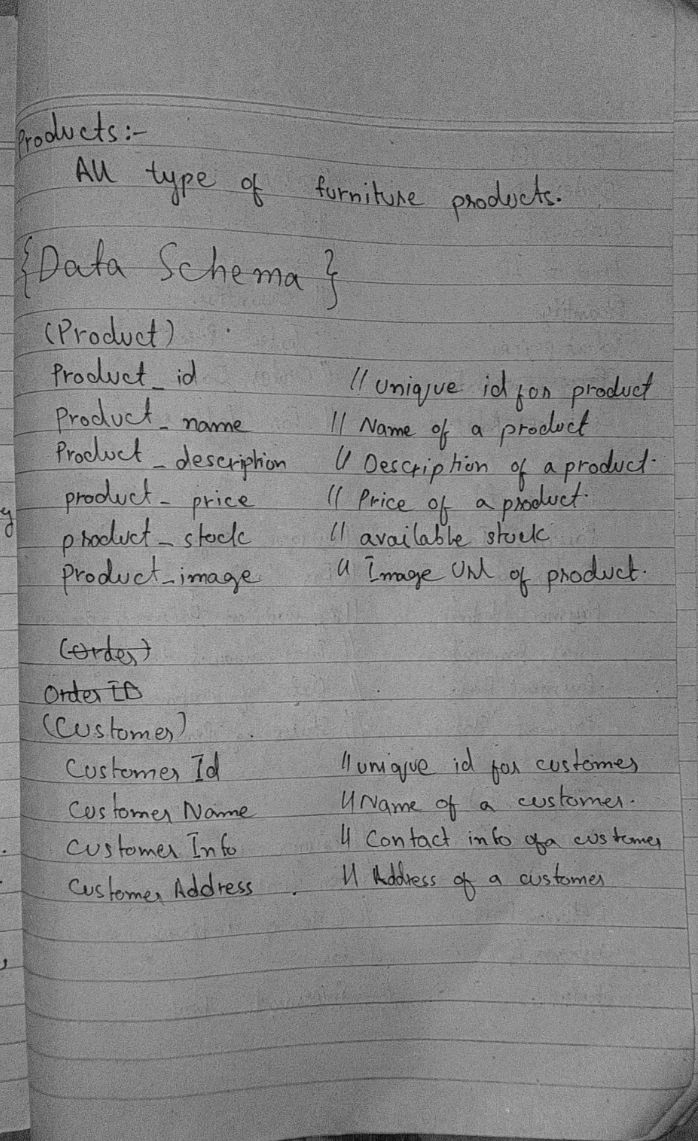 Products:-
All type of furniture products.
{Data Schema}
(Product)
Product_id // unique id for product
Product_name // Name of a product
Product_description // Description of a product.
product_price // Price of a product.
product_stock // available stock
Product_image // Image Url of product.
(Order)
Order ID
(Customer)
Customer Id // unique id for customer
Customer Name // Name of a customer.
Customer Info // Contact info of a customer
Customer Address // Address of a customer